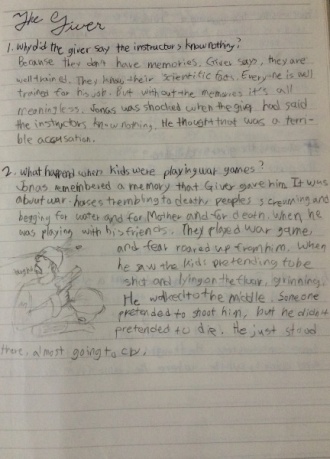 The Giver
1. Why d'd the giver say the instructors know nothing?
Because they don't have memories. Giver says, they are
well trained. They know their scientific facts. Everyone is well
trained for his job. But without the memories it's all
meaningless. Jonas was shocked when the giver had said
the instructors know nothing. He thought that was a terri-
ble accusation.
2. What happend when kids were playing war games?
Jonas remembered a memory that Giver gave him. It was
about war. horses trembling to death, peoples screaming and
begging for water and for Mother and for death. when he
was playing with his friends. They played war game,
and fear roared up from him. When
he saw the kids pretending to be
shot and lying on the floor, grinning.
He walked to the middle. Someone
pretended to shoot him, but he didn't
pretended to die. He just stood
there, almost going to cry.